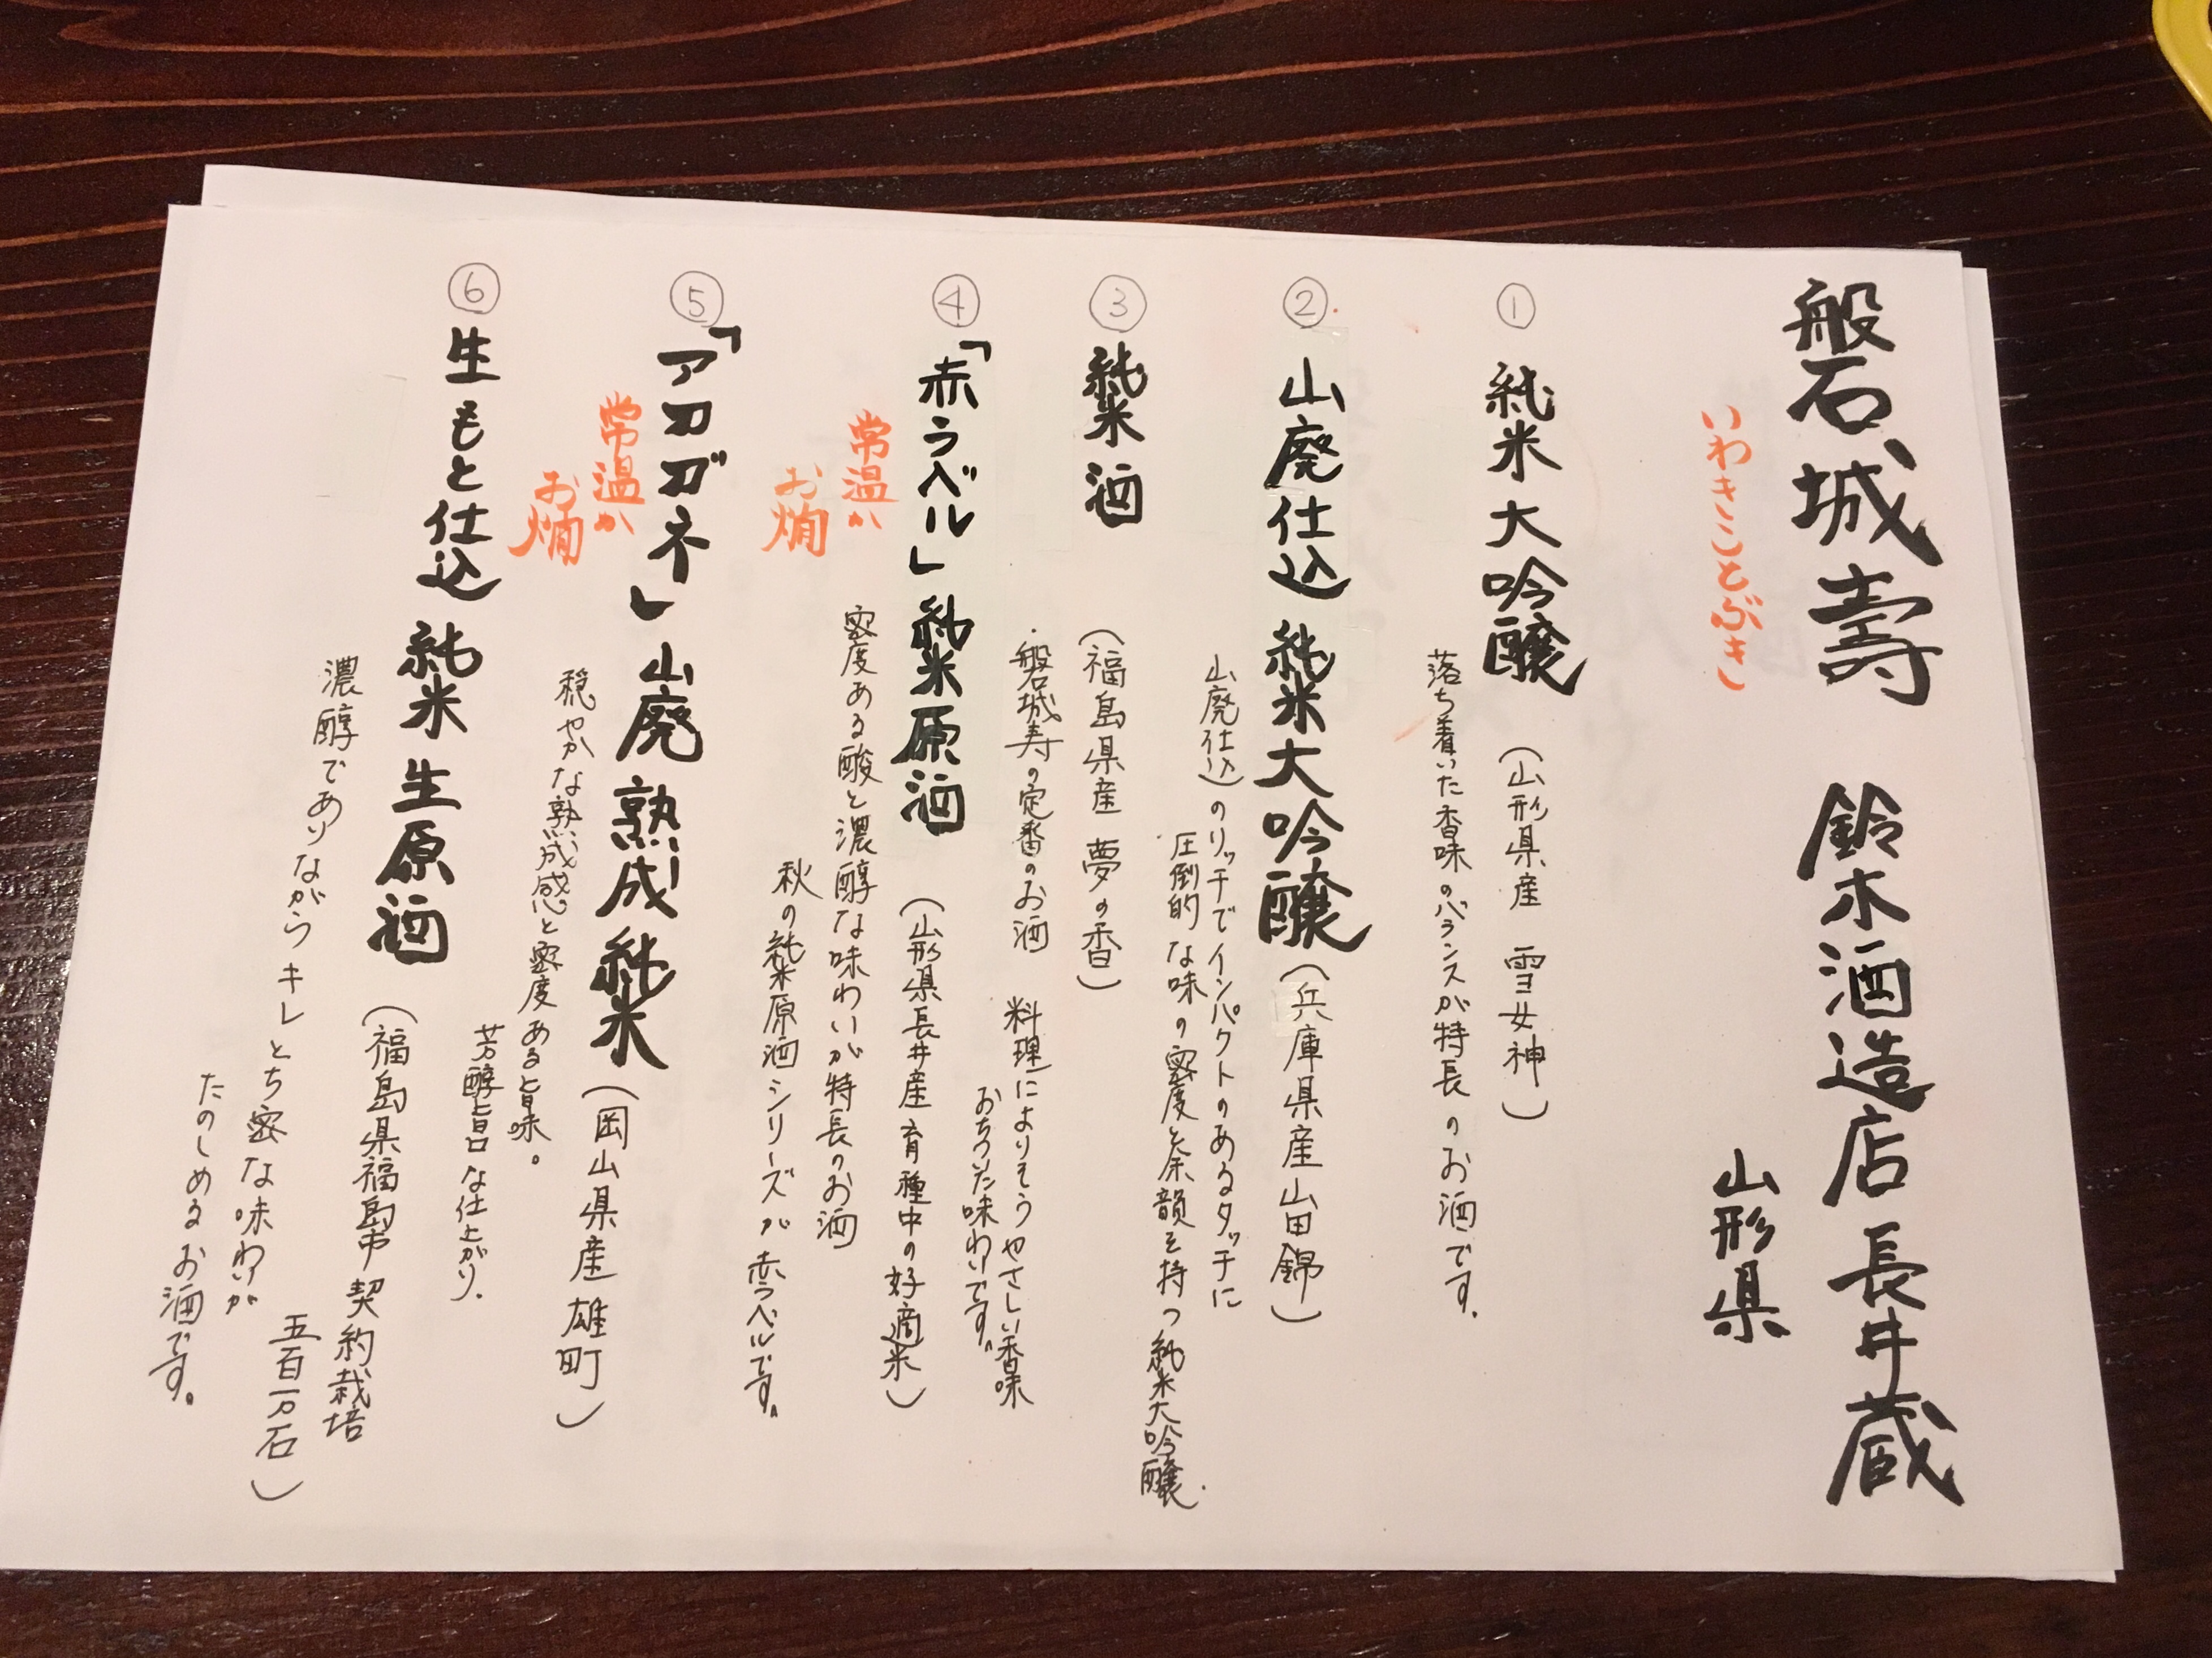 磐城壽 鈴木酒造店長井蔵
いわきことぶき
山形県
① 純米大吟醸
(山形県産 雪女神)
落ち着いた香味のバランスが特長のお酒です。
② 山廃仕込 純米大吟醸
(兵庫県産山田錦)
山廃仕込のリッチでインパクトのあるタッチに
圧倒的な味の密度と余韻を持つ純米大吟醸.
③ 純米酒
(福島県産 夢の香)
磐城寿の定番のお酒 料理によりそうやさしい香味
おちついた味わいです。
④「赤ラベル」純米原酒
(山形県長井産育種中の好適米)
常温か
お燗
密度ある酸と濃醇な味わいが特長のお酒
秋の純米原酒シリーズが赤ラベルです。
⑤「アカガネ」山廃 熟成 純米
(岡山県産 雄町)
常温か
お燗
穏やかな熟成感と密度ある旨味。
芳醇旨口な仕上がり.
⑥ 生もと仕込 純米生原酒
(福島県福島市契約栽培
五百万石)
濃醇でありながらキレとち密な味わいが
たのしめるお酒です。